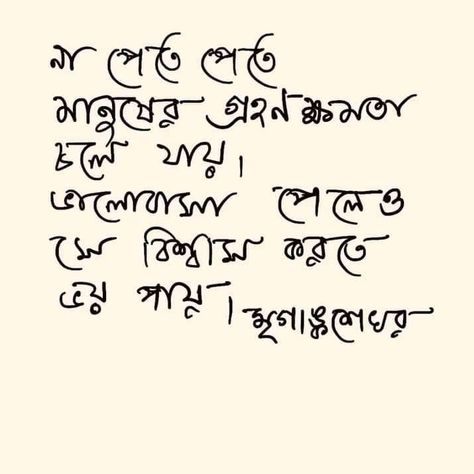 না পেতে পেতে
মানুষের গ্রহনক্ষমতা
চলে যায়।
ভালোবাসা পেলেও
সে বিশ্বাস করতে
ভয় পায়।
মৃগাঙ্কশেখর